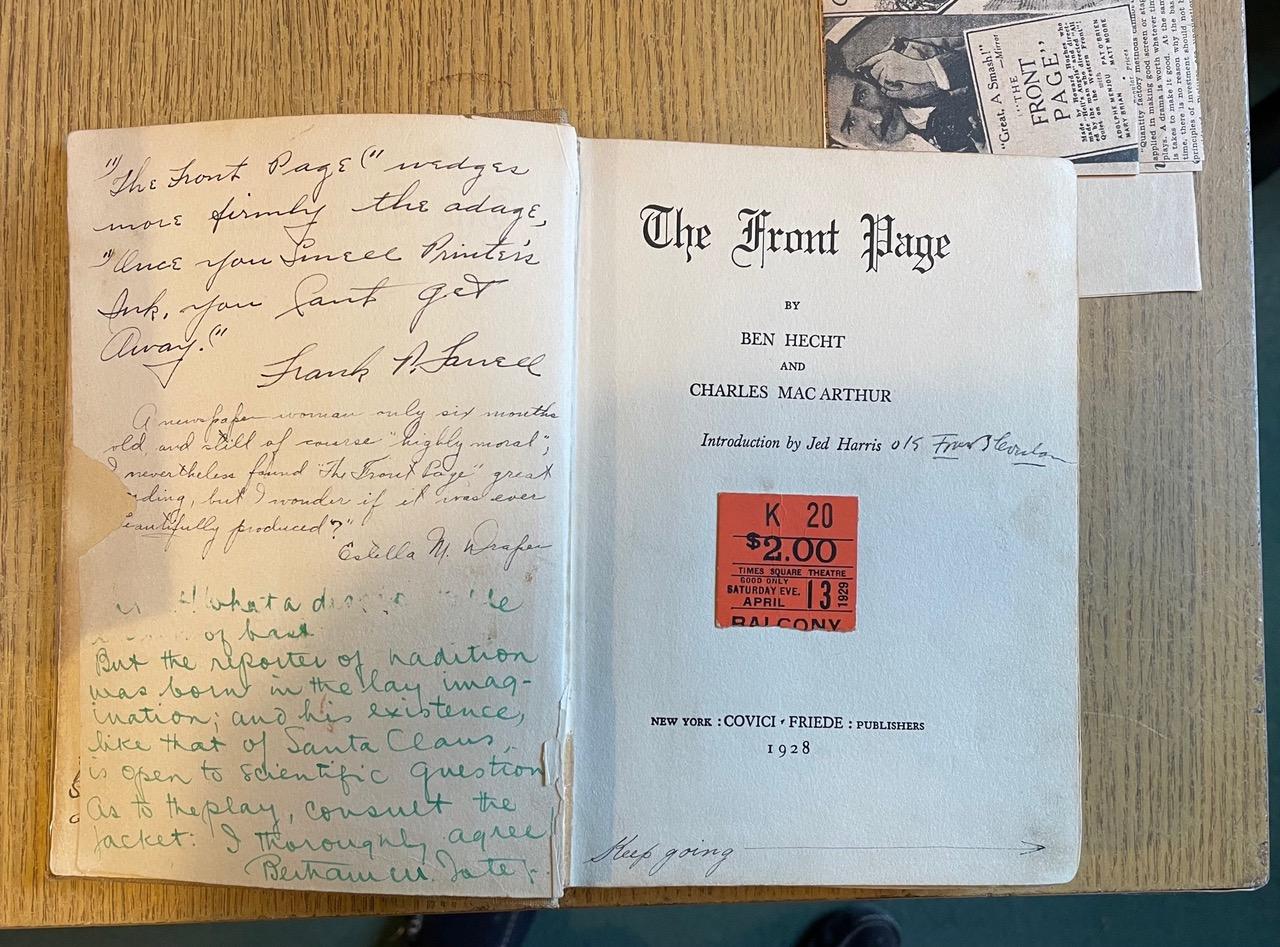 "The Front Page" wedges
more firmly the adage,
"Once you Smell Printer's
Ink, you Can't get
Away."
Frank P.
A newspaper woman only six months
old, and still of course "highly moral",
I nevertheless found "The Front Page" great
but I wonder if it was ever
produced?"
Estella M. Draper
What a
of
But the reporter of tradition
was born in the lay imag-
ination; and his existence,
like that of Santa Claus,
is open to scientific question
As to the play, consult the
jacket: I thoroughly agree
The Front Page
BY
BEN HECHT
AND
CHARLES MAC ARTHUR
Introduction by Jed Harris OK
K 20
$2.00
TIMES SQUARE THEATRE
GOOD ONLY
SATURDAY EVE.
APRIL 13 1929
BALCONY
NEW YORK : COVICI · FRIEDE : PUBLISHERS
1928
Keep going
"Great, A Smash!"
—Mirror
"THE
FRONT
PAGE"
Made by Howard Hughes who
made "Hell's Angels" and direct-
ed by the man who directed "All
Quiet on the Western Front"
with
ADOLPHE MENJOU PAT O'BRIEN
MARY BRIAN MATT MOORE
Prices
"Quantity factory methods
applied in making good screen or
plays. A drama is worth whatever
is takes to make it good. At the
time, there is no reason why the
principles of investment should not